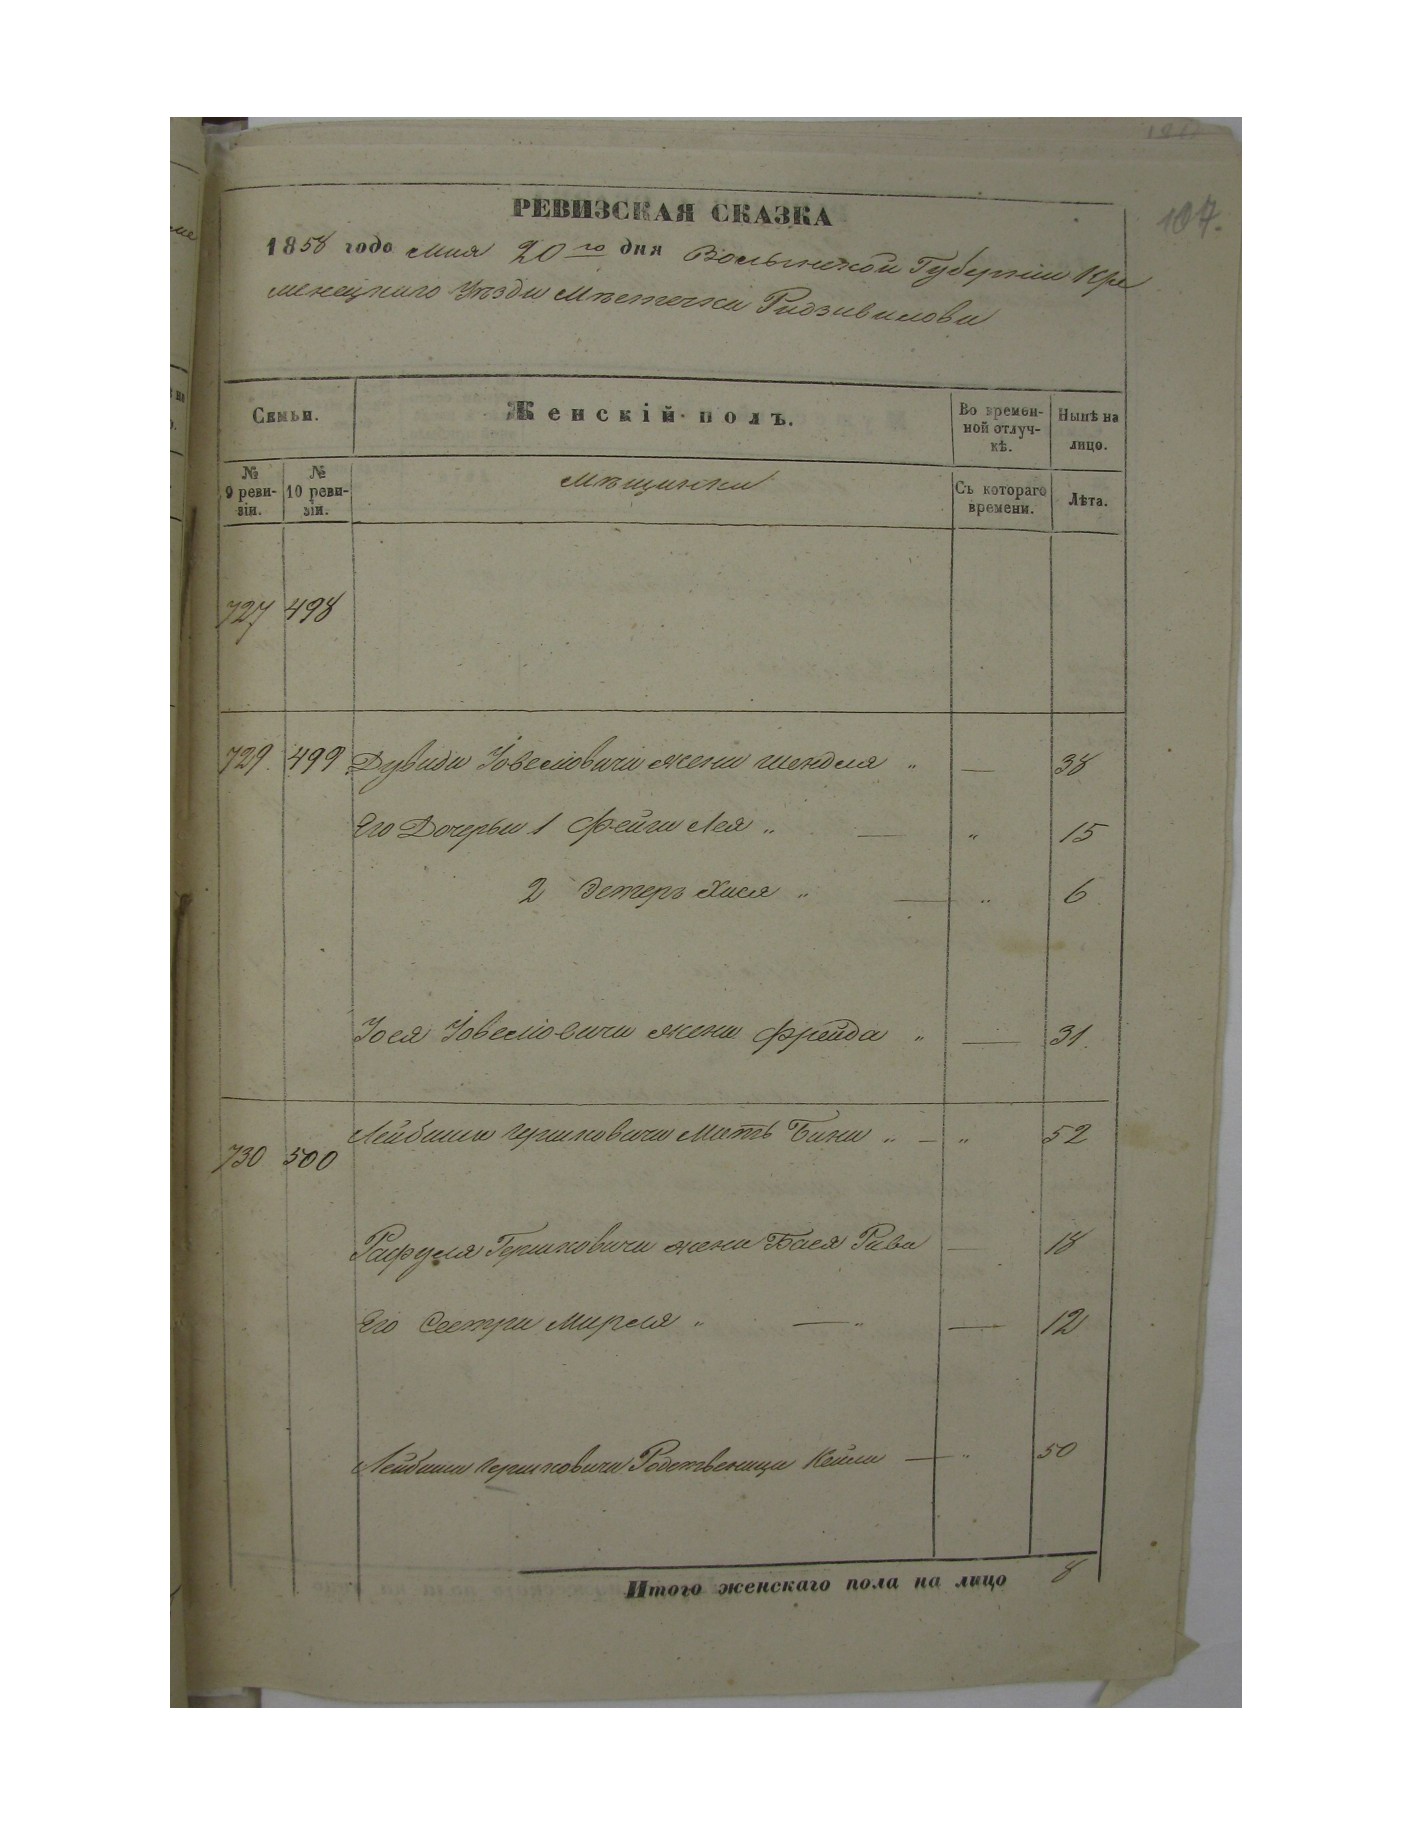 107.
РЕВИЗСКАЯ СКАЗКА
1858 года Мая 20го дня Волынской Губерніи Кре
менецкаго Уѣзда Мѣстечка Радзивилова
Семьи.
Женскій полъ.
Во времен-
ной отлуч-
кѣ.
Нынѣ на
лицо.
№
9 реви-
зіи.
№
10 реви-
зіи.
Мѣщанки
Съ котораго
времени.
Лѣта.
727 498
729 499 Дувида Іовселіовича жена Шендля „ — 38
Его Дочерьи 1 Фейга Лея „ — „ 15
2 Эстеръ Хася „ — „ 6
Іося Іовселіовича жена Фрейда „ — 31
730 500 Лейбиша Гершковича Мать Бина „ — „ 52
Рафуля Гершковича жена Бася Рива — 18
Его Сестра Мирля „ — „ — 12
Лейбиша Гершковича Родственица Кейла — „ 50
Итого женскаго пола на лицо 8